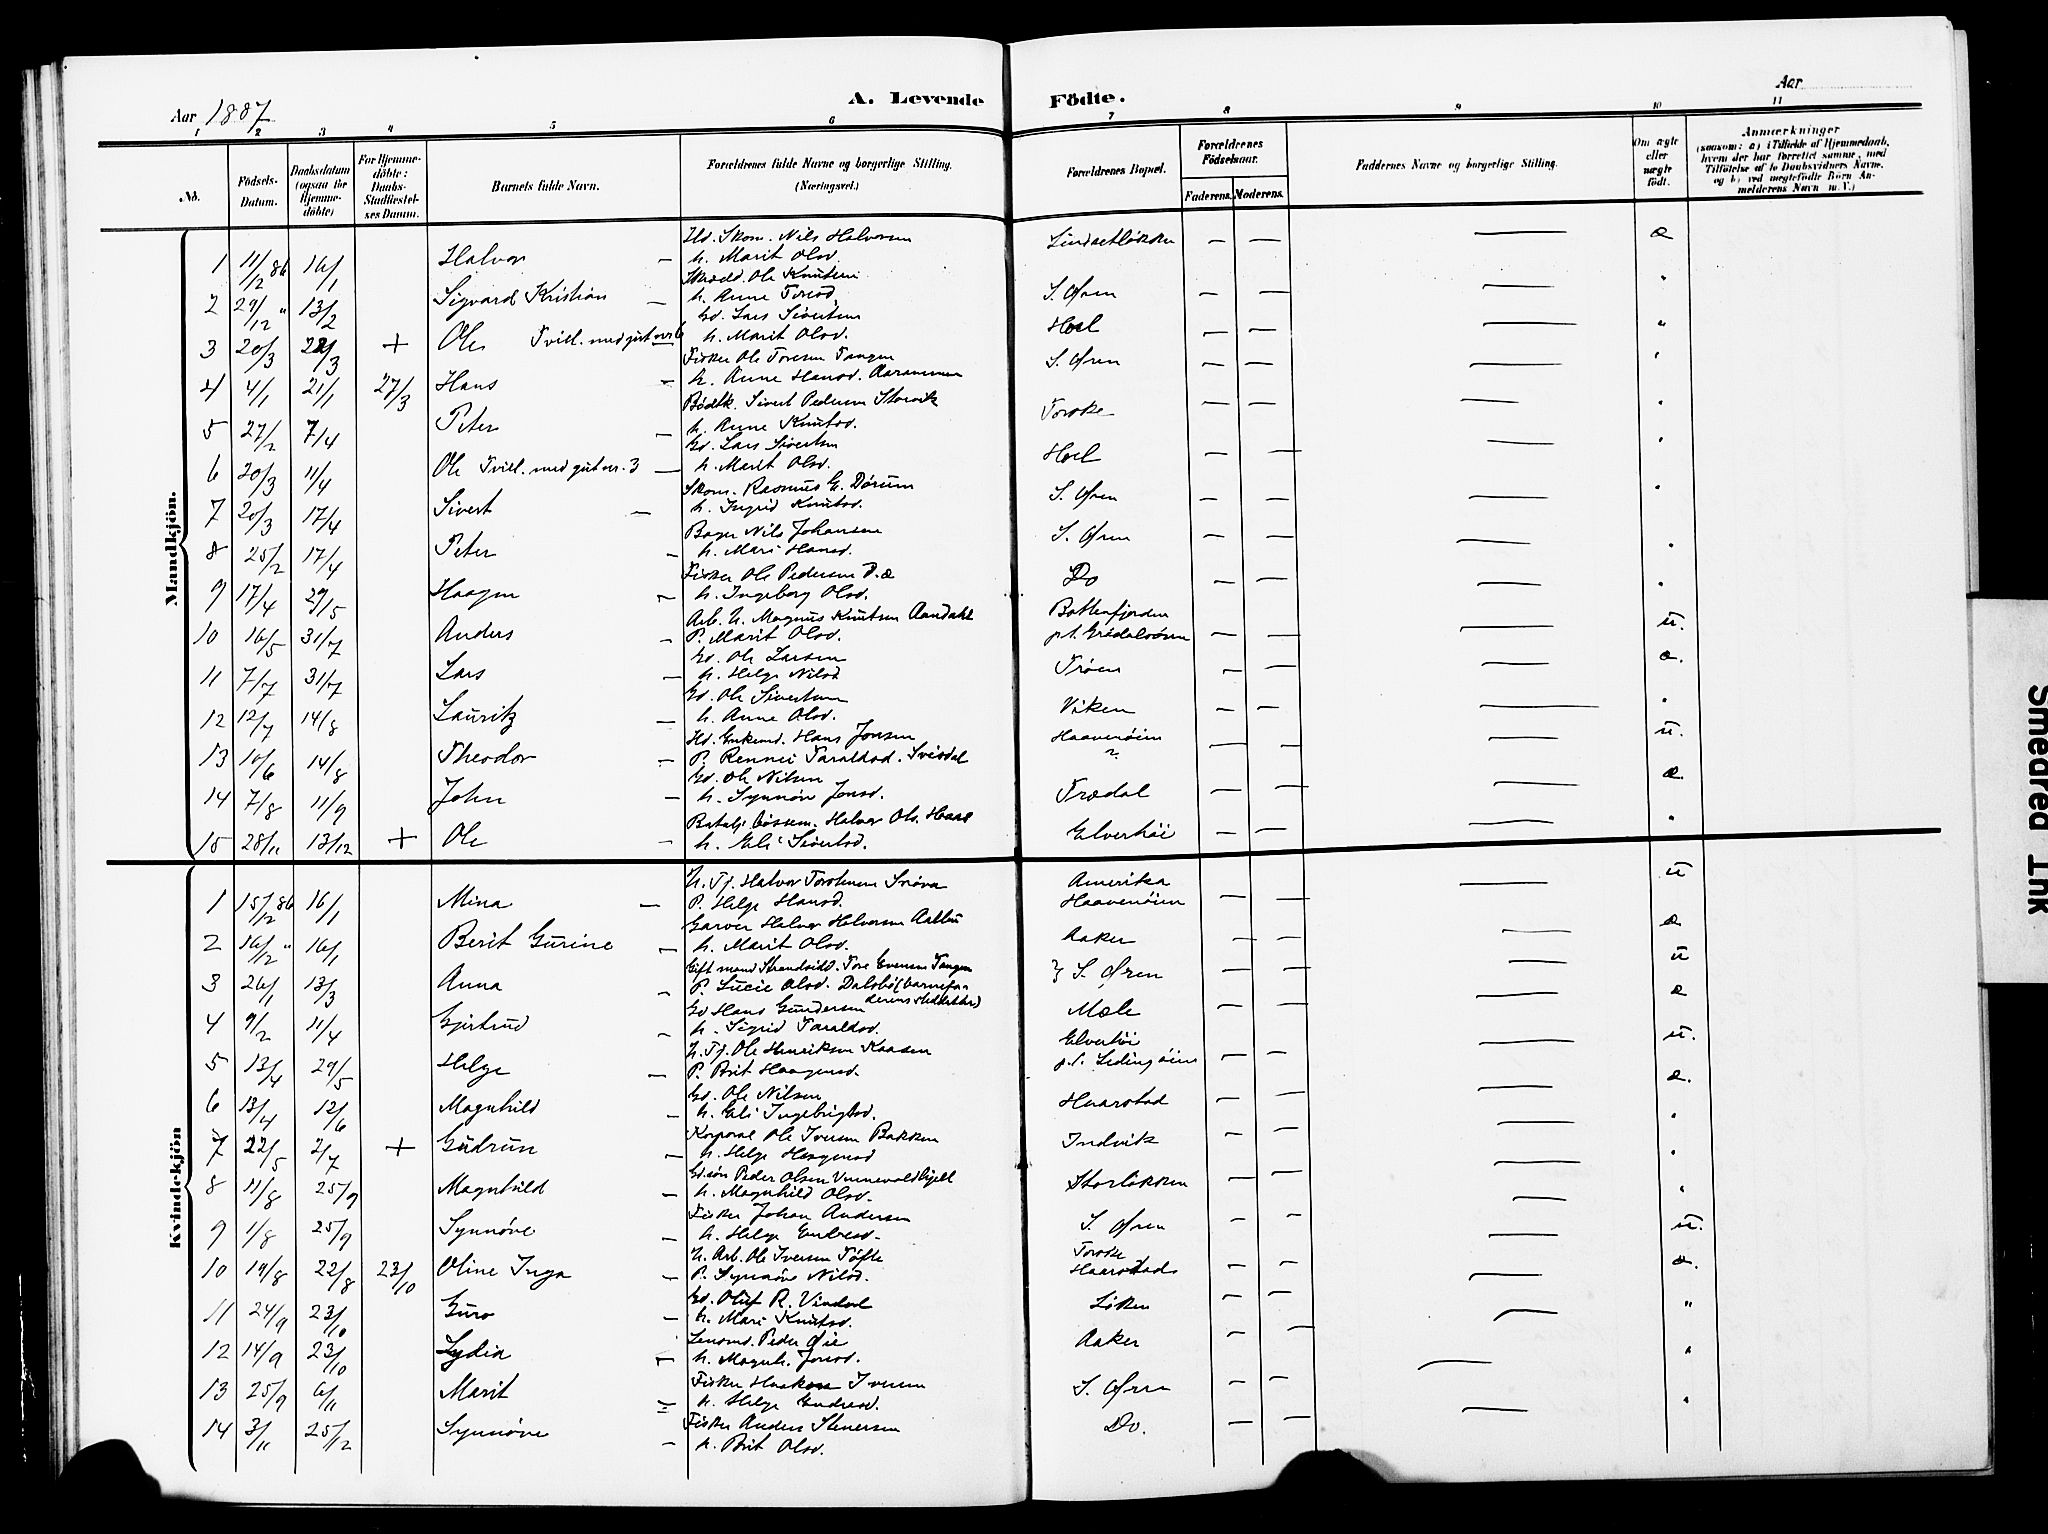 Aar 1887
A. Levende Födte.
Aar
1 2 3 4 5 6 7 8 9 10 11
No.
Födsels-Datum.
Daabsdatum (ogsaa for Hjemmedöbte)
For Hjemmedöbte: Daabs-Stadfæstelses Datum.
Barnets fulde Navn.
Forældrenes fulde Navne og borgerlige Stilling. (Næringsvei.)
Forældrenes Bopæl.
Forældrenes Födselsaar.
Faderens. Moderens.
Faddernes Navne og borgerlige Stilling.
Om ægte eller uægte födt.
Anmærkninger
(saasom: a) i Tilfælde af Hjemmedaab, hvem der har forrettet samme, med Tilföielse af to Daabsvidners Navne, og b) ved uægtefödte Börn Anmelderens Navn m. V.)
Mandkjön.
1 11/2 86 16/1 Halvor — Hd. Skom. Nils Halvorsen h. Marit Olsd. — — — æ
2 29/12 " 13/2 Sigvard Kristian — Ole Knutsen h. Anne Toresd. S. Øren — — — "
3 20/3 22/3 + Ole Tvill. med gut nr 6 Gd. Lars Sivertsen h. Marit Olsd. Hoel — — — "
4 4/1 21/1 27/3 Hans — Fisker Ole Toresen Tangen h. Anne Hansd. Aarammen S. Øren — — — "
5 27/2 7/4 Peter — Bødtk. Sivert Pedersen Storvik h. Anne Knutsd. Torske — — — "
6 20/3 11/4 Ole Tvill. med gut nr. 3 — Gd. Lars Sivertsen h. Marit Olsd. Hoel — — — "
7 20/3 17/4 Sivert — Skom. Rasmus G. Dørum h. Ingrid Knutsd. S. Øren — — — "
8 25/2 17/4 Peter — Bager Nils Johansen h. Mari Hansd. S. Øren — — — "
9 17/4 29/5 Haagen — Fisker Ole Pedersen h. Ingeborg Olsd. Do — — — "
10 16/5 31/7 Anders — Arb. U. Magnus Knutsen Aandahl P. Marit Olsd. Battenfjorden p.t. Grødalsøren — — — u.
11 7/7 31/7 Lars — Gd. Ole Larsen h. Helge Nilsd Trøen — — — æ.
12 12/7 14/8 Lauritz — Gd. Ole Sivertsen h. Anne Olsd. Viken — — — "
13 10/6 14/8 Theodor — Hd. Enkemd. Hans Jonsen P. Rennei Taraldsd. Svisdal Haavenøien — — — u.
14 7/8 11/9 John — Gd. Ole Nilsen h. Synnøv Jonsd. Trædal — — — æ.
15 28/11 13/12 + Ole — Halvor Ols. h. Eli Sivertsd. Elverhøi — — — "
Kvindekjön
1 15/12 86 16/1 Mina — U. Tj. Halvor Torstensen P. Helge Hansd. Amerika Haavenøien — — — u
2 16/12 " 16/1 Berit Gurine — Garver Halvor Halvorsen h. Marit Olsd. Aaker — — — æ
3 26/1 13/3 Anna — Gift mand Strandsidd. Tore Evensen Tangen P. Lucie Olsd. Dalsbø (barnefaderens stedatter) S. Øren — — — u
4 9/2 11/4 Gjertrud — Gd Hans Gundersen h. Sigrid Taraldsd. Mæle — — — æ
5 13/4 29/5 Helge — U. Tj. Ole Henriksen Kaasen P. Brit Haagensd. Elverhøi p.t. — — — u.
6 13/4 12/6 Magnhild — Gd. Ole Nilsen h. Eli Ingebrigtsd. Haarstad — — — æ.
7 22/5 2/7 + Gudrun — Korporal Ole Iversen Bakken h. Helge Haagensd Indvik — — — "
8 11/8 25/9 Magnhild — Gd.søn Peder Olsen Vinnevoldhjell h. Magnhild Olsd. Storløkken — — — "
9 1/8 25/9 Synnøve — Fisker Johan Andersen h. Helge Endresd. S. Øren — — — "
10 19/8 22/8 23/10 Oline Inga — U. Arb. Ole Iversen Tøfte P. Synnøve Nilsd. Torske Haarstad — — — u.
11 24/9 23/10 Guro — Gd. Oluf R. Vindal h. Mari Knutsd. Løken — — — æ.
12 14/9 23/10 Lydia — Lensmd. Peder Øie h. Magnh. Jonsd. Aaker — — — "
13 25/9 6/11 Marit — Fisker Haakon Iversen h. Helge Endresd. S. Øren — — — "
14 3/11 25/12 Synnøve — Fisker Anders Stenersen h. Brit Olsd. Do. — — — "
Smeared Ink